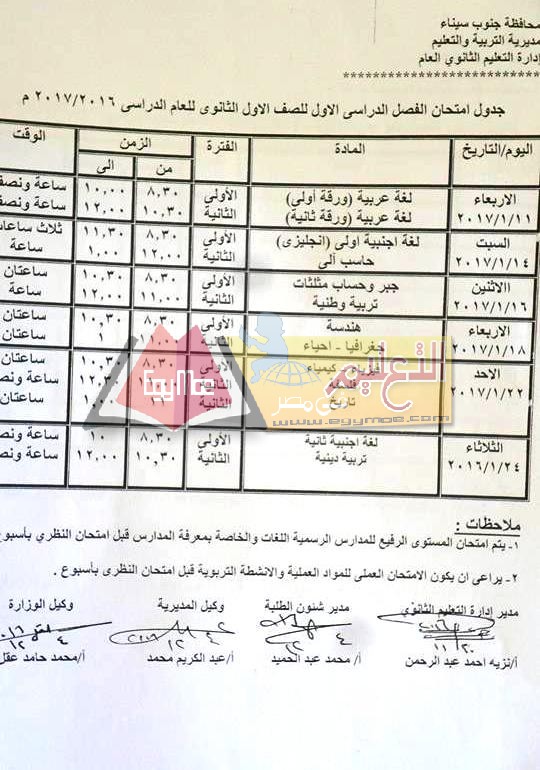 محافظة جنوب سيناء
مديرية التربية والتعليم
إدارة التعليم الثانوي العام
***************************
جدول امتحان الفصل الدراسى الاول للصف الاول الثانوى للعام الدراسى ٢٠١٧/٢٠١٦ م
اليوم/التاريخ المادة الفترة الزمن الوقت
من الى
الاربعاء لغة عربية (ورقة أولى) الأولى ٨,٣٠ ١٠,٠٠ ساعة ونصف
٢٠١٧/١/١١ لغة عربية (ورقة ثانية) الثانية ١٠,٣٠ ١٢,٠٠ ساعة ونصف
السبت لغة اجنبية اولى (انجليزى) الأولى ٨,٣٠ ١١,٣٠ ثلاث ساعات
٢٠١٧/١/١٤ حاسب آلى الثانية ١٢,٠٠ ١,٠٠ ساعة
الاثنين جبر وحساب مثلثات الأولى ٨,٣٠ ١٠,٣٠ ساعتان
٢٠١٧/١/١٦ تربية وطنية الثانية ١١,٠٠ ١٢,٠٠ ساعة
الاربعاء هندسة الأولى ٨,٣٠ ١٠,٣٠ ساعتان
٢٠١٧/١/١٨ جغرافيا - احياء الثانية ساعتان
الاحد فيزياء - كيمياء الأولى ساعتان
٢٠١٧/١/٢٢ فلسفة الثانية ساعة ونصف
تاريخ الثانية ساعتان
الثلاثاء لغة اجنبية ثانية الأولى ٨,٣٠ ١٠ ساعة ونصف
٢٠١٦/١/٢٤ تربية دينية الثانية ١٠,٣٠ ١٢,٠٠ ساعة ونصف
التعليم
فى مصر
EgyMoe
www.egymoe.com
ملاحظات :
١- يتم امتحان المستوى الرفيع للمدارس الرسمية اللغات والخاصة بمعرفة المدارس قبل امتحان النظري بأسبوع
٢- يراعى ان يكون الامتحان العملى للمواد العملية والانشطة التربوية قبل امتحان النظرى بأسبوع .
مدير إدارة التعليم الثانوي مدير شئون الطلبة وكيل المديرية وكيل الوزارة
أ/نزيه احمد عبد الرحمن أ/ محمد عبد الحميد أ/عبد الكريم محمد أ/محمد حامد عقل